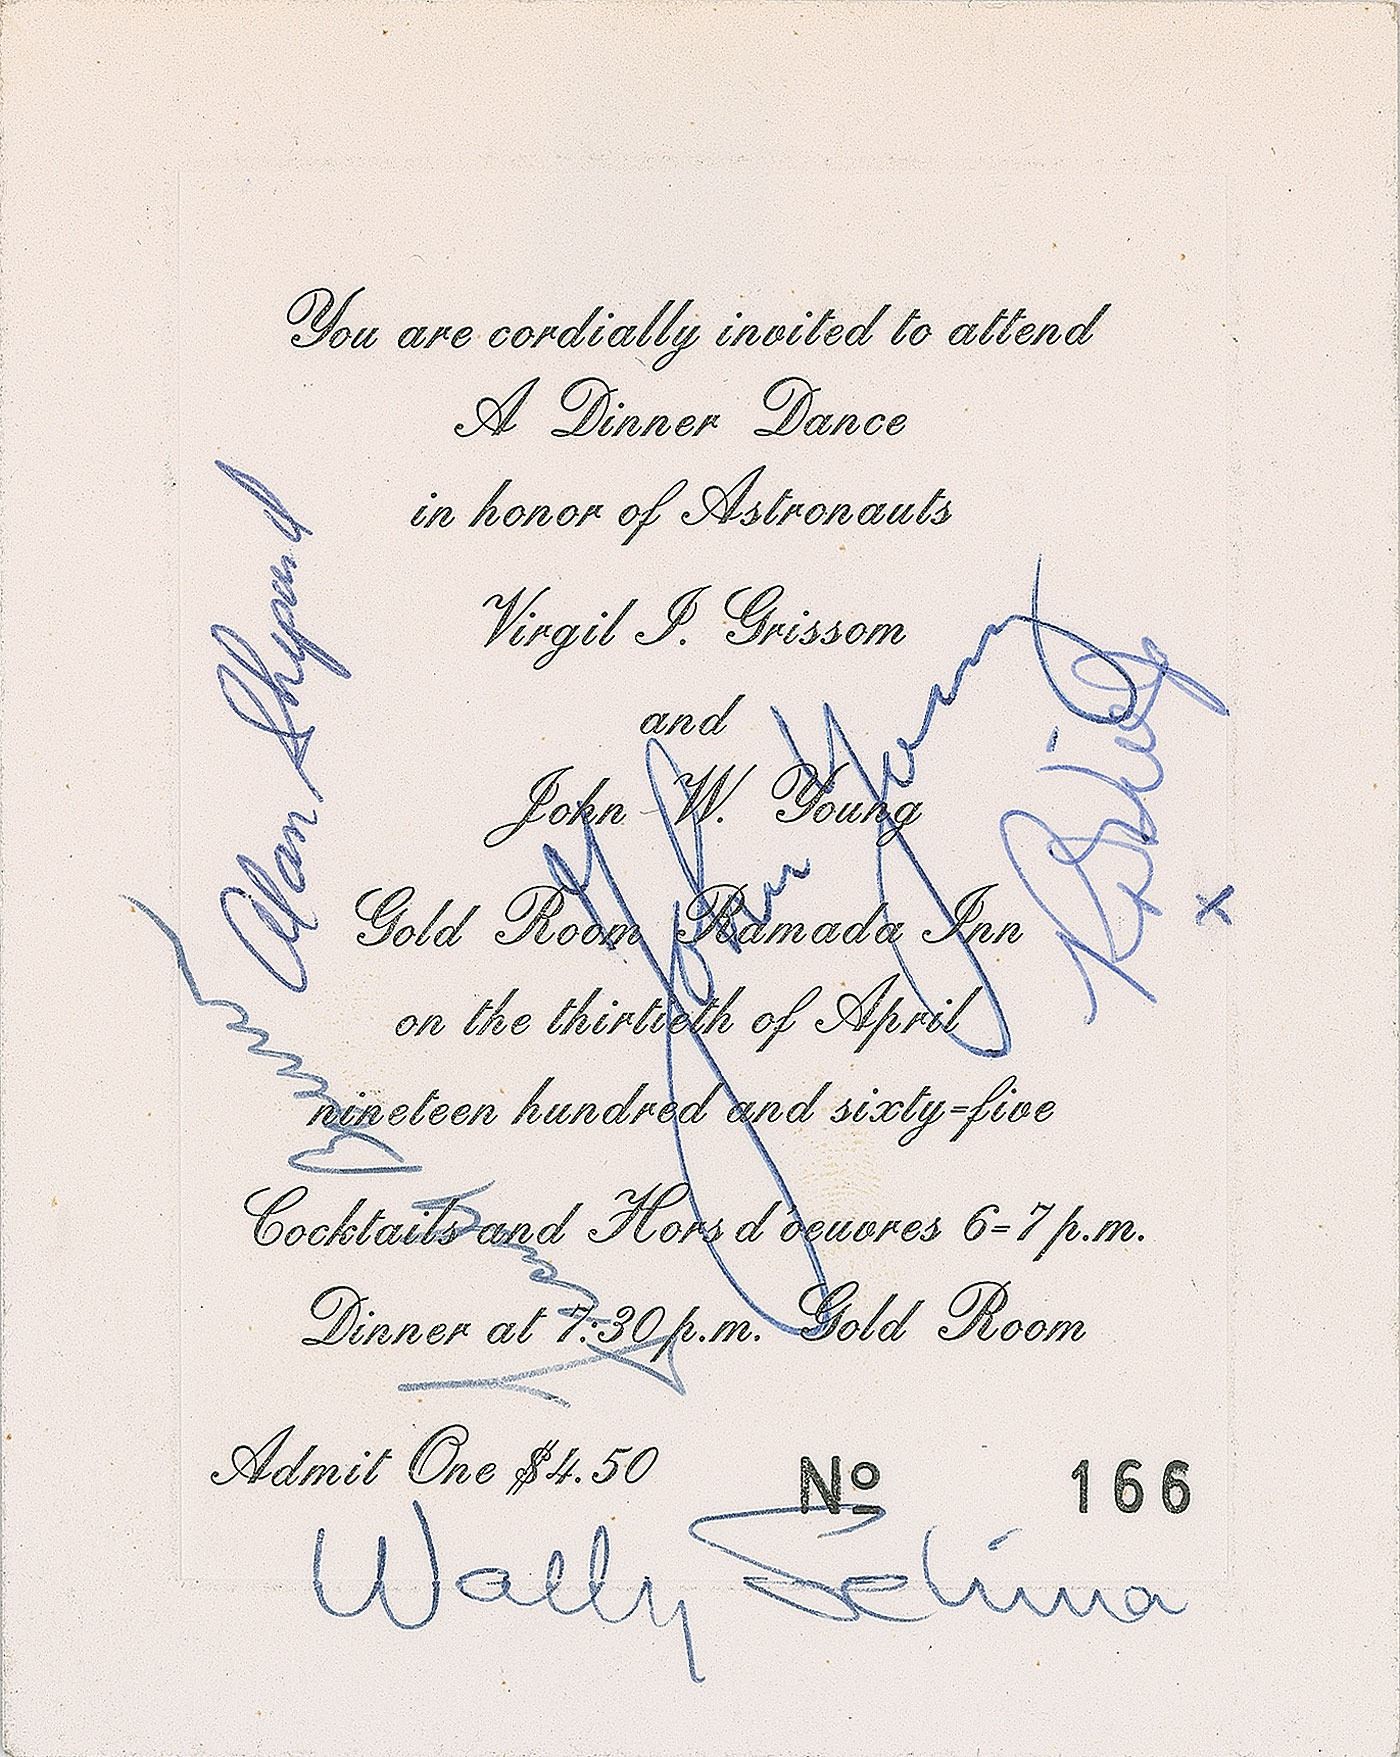 You are cordially invited to attend
A Dinner Dance
in honor of Astronauts
Virgil I. Grissom
and
John W. Young
Gold Room Ramada Inn
on the thirtieth of April
nineteen hundred and sixty=five
Cocktails and Hors d'oeuvres 6=7 p.m.
Dinner at 7:30 p.m. Gold Room
Admit One $4.50
No 166
Alan Shepard
John Young
Wally Schirra
x